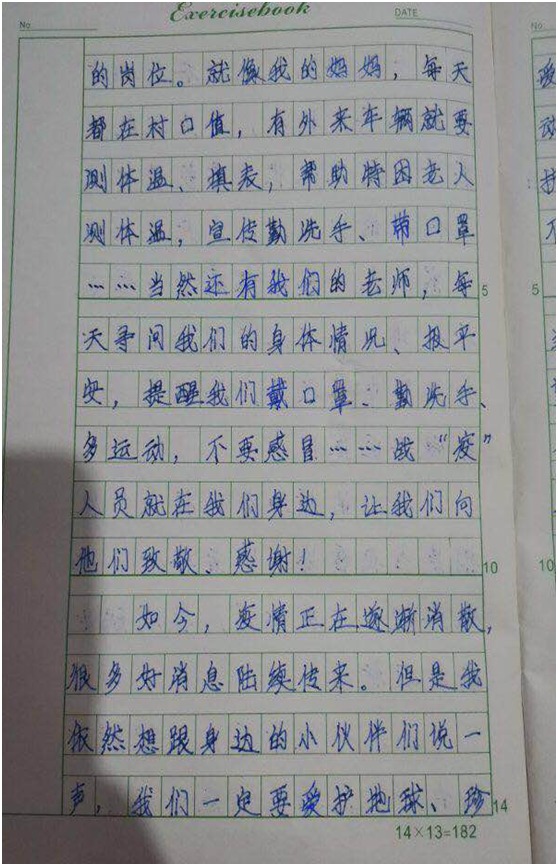 Exercisebook
No
DATE
No.
的岗位。就像我的妈妈，每天
都在村口值，有外来车辆就要
测体温、填表，帮助特困老人
测体温，宣传勤洗手、带口罩
……当然还有我们的老师，每
5
天予问我们的身体情况、报平
安，提醒我们戴口罩、勤洗手、
多运动，不要感冒……战“疫”
人员就在我们身边，让我们向
他们致敬、感谢！
10
如今，疫情正在逐渐消散，
很多好消息陆续传来。但是我
依然想跟身边的小伙伴们说一
声，我们一定要爱护地球、珍
14
14×13=182
5
10